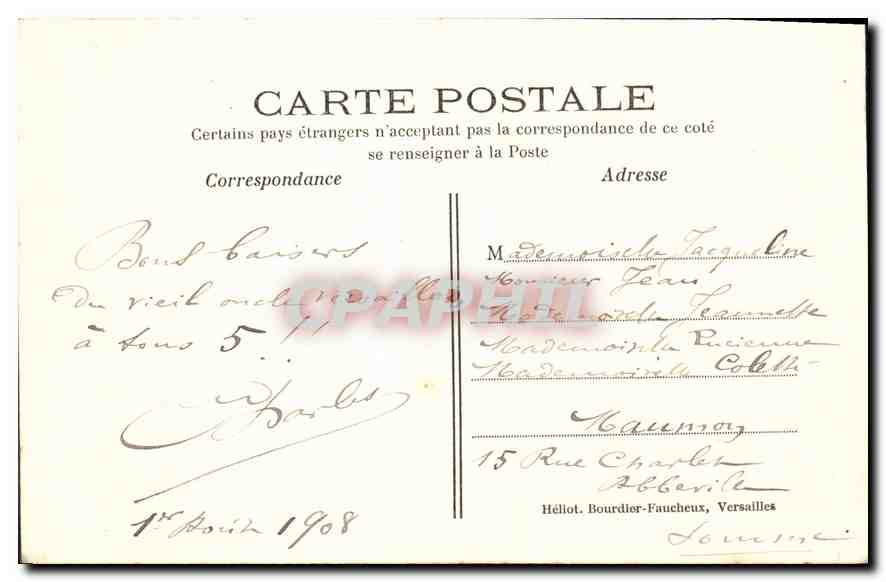 CARTE POSTALE
Certains pays étrangers n'acceptant pas la correspondance de ce coté
se renseigner à la Poste
Correspondance
Bons baisers
du vieil oncle versaillais
à tous 5..!!
Charles
1er Août 1908
Adresse
Mademoiselle Jacqueline
Monsieur Jean
Mademoiselle Jeannette
Mademoiselle Lucienne
Mademoiselle Colette
15 Rue Charlet
Abbeville
Héliot. Bourdier-Faucheux, Versailles
Somme
CPAPHIL